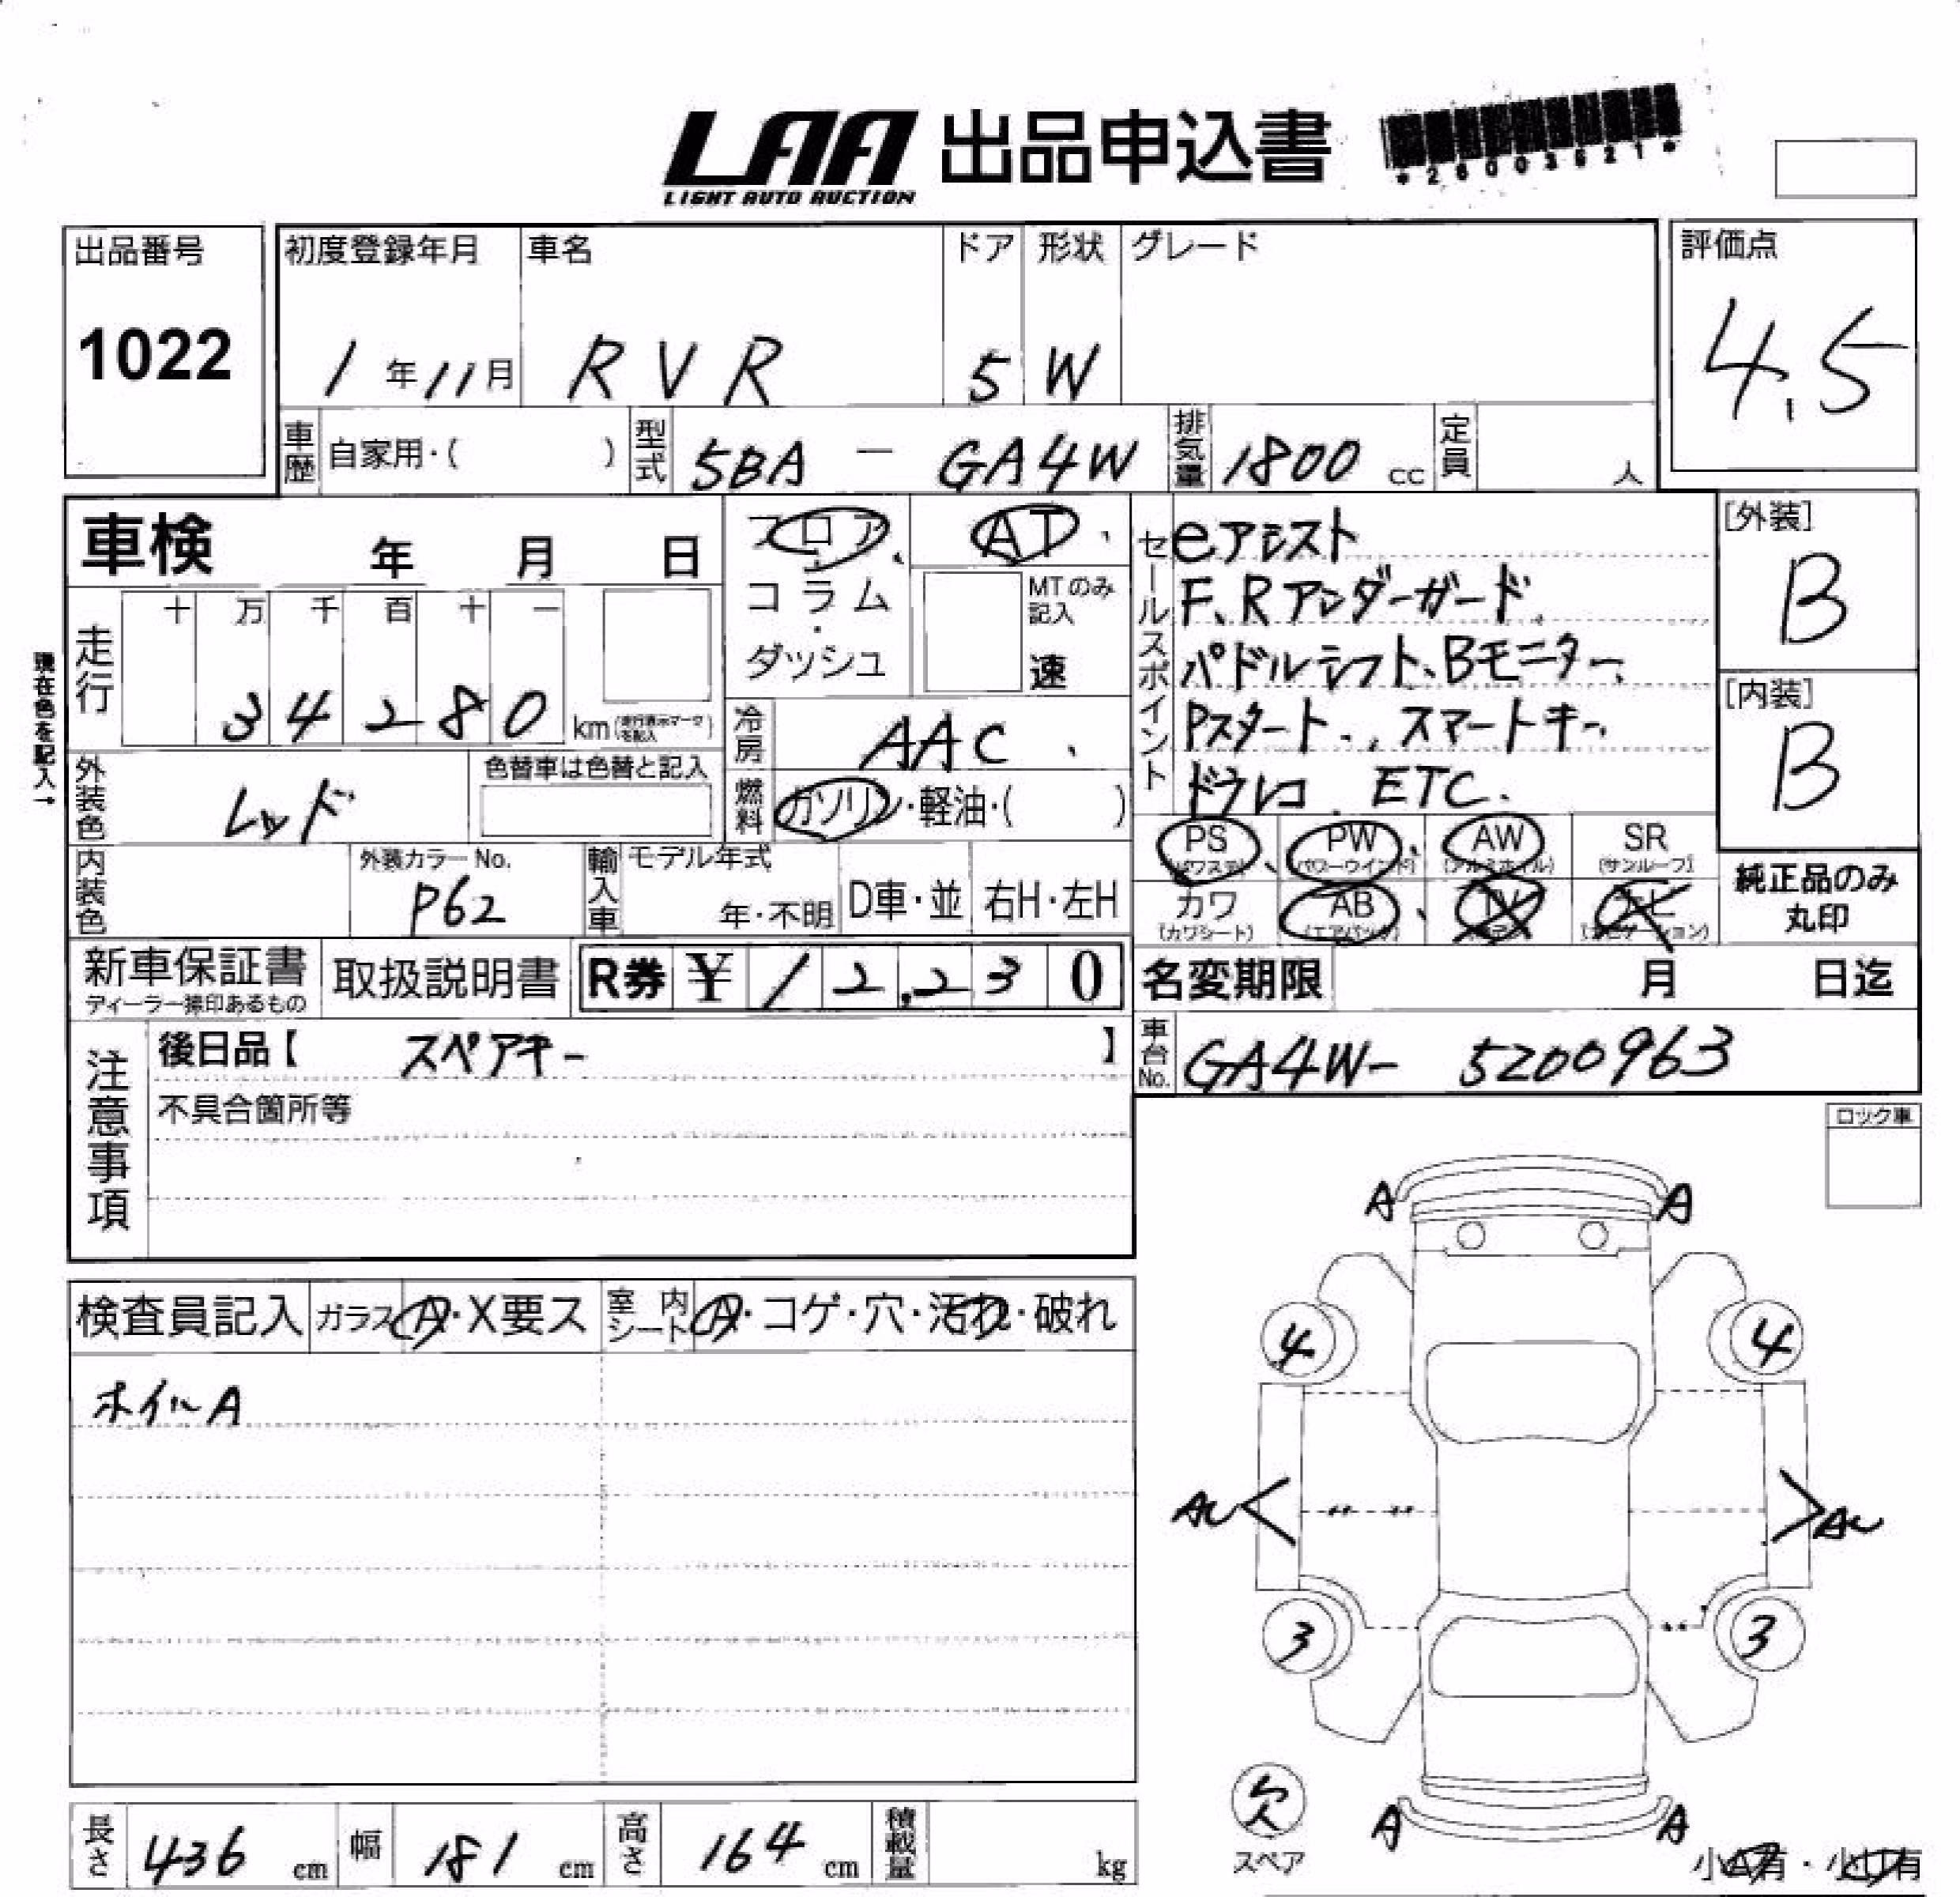 LAA 出品申込書
LIGHT AUTO AUCTION
*26003621*
出品番号
1022
初度登録年月
1年11月
車名
RVR
ドア
5
形状
W
グレード
評価点
4.5
車歴
自家用・( )
型式
5BA - GA4W
排気量
1800 cc
定員
人
車検 年 月 日
フロア
コラム
・
ダッシュ
AT
MTのみ
記入
速
セールスポイント
eアシスト
F、Rアンダーガード、
パドルシフト、Bモニター、
Pスタート、スマートキー、
ドラレコ、ETC.
[外装]
B
[内装]
B
現在色を記入→
走行
十 万 千 百 十 一
34280
km(走行表示マークを記入)
冷房
AAC
燃料
ガソリン・軽油・( )
外装色
レッド
色替車は色替と記入
PS
(パワステ)
PW
(パワーウインド)
AW
(アルミホイル)
SR
(サンルーフ)
カワ
(カワシート)
AB
(エアバック)
純正品のみ
丸印
内装色
外装カラーNo.
P62
輸入車
モデル年式
年・不明
D車・並
右H・左H
新車保証書
ディーラー捺印あるもの
取扱説明書
R券 ¥12,230
名変期限 月 日迄
注意事項
後日品【 スペアキー 】
不具合箇所等
車台No.
GA4W- 5200963
ロック車
検査員記入
ガラス A・X要ス
室内シート A・コゲ・穴・汚れ・破れ
ホイルA
A A
4 4
AU AU
3 3
欠
スペア
A A
長さ 436 cm
幅 181 cm
高さ 164 cm
積載量 kg